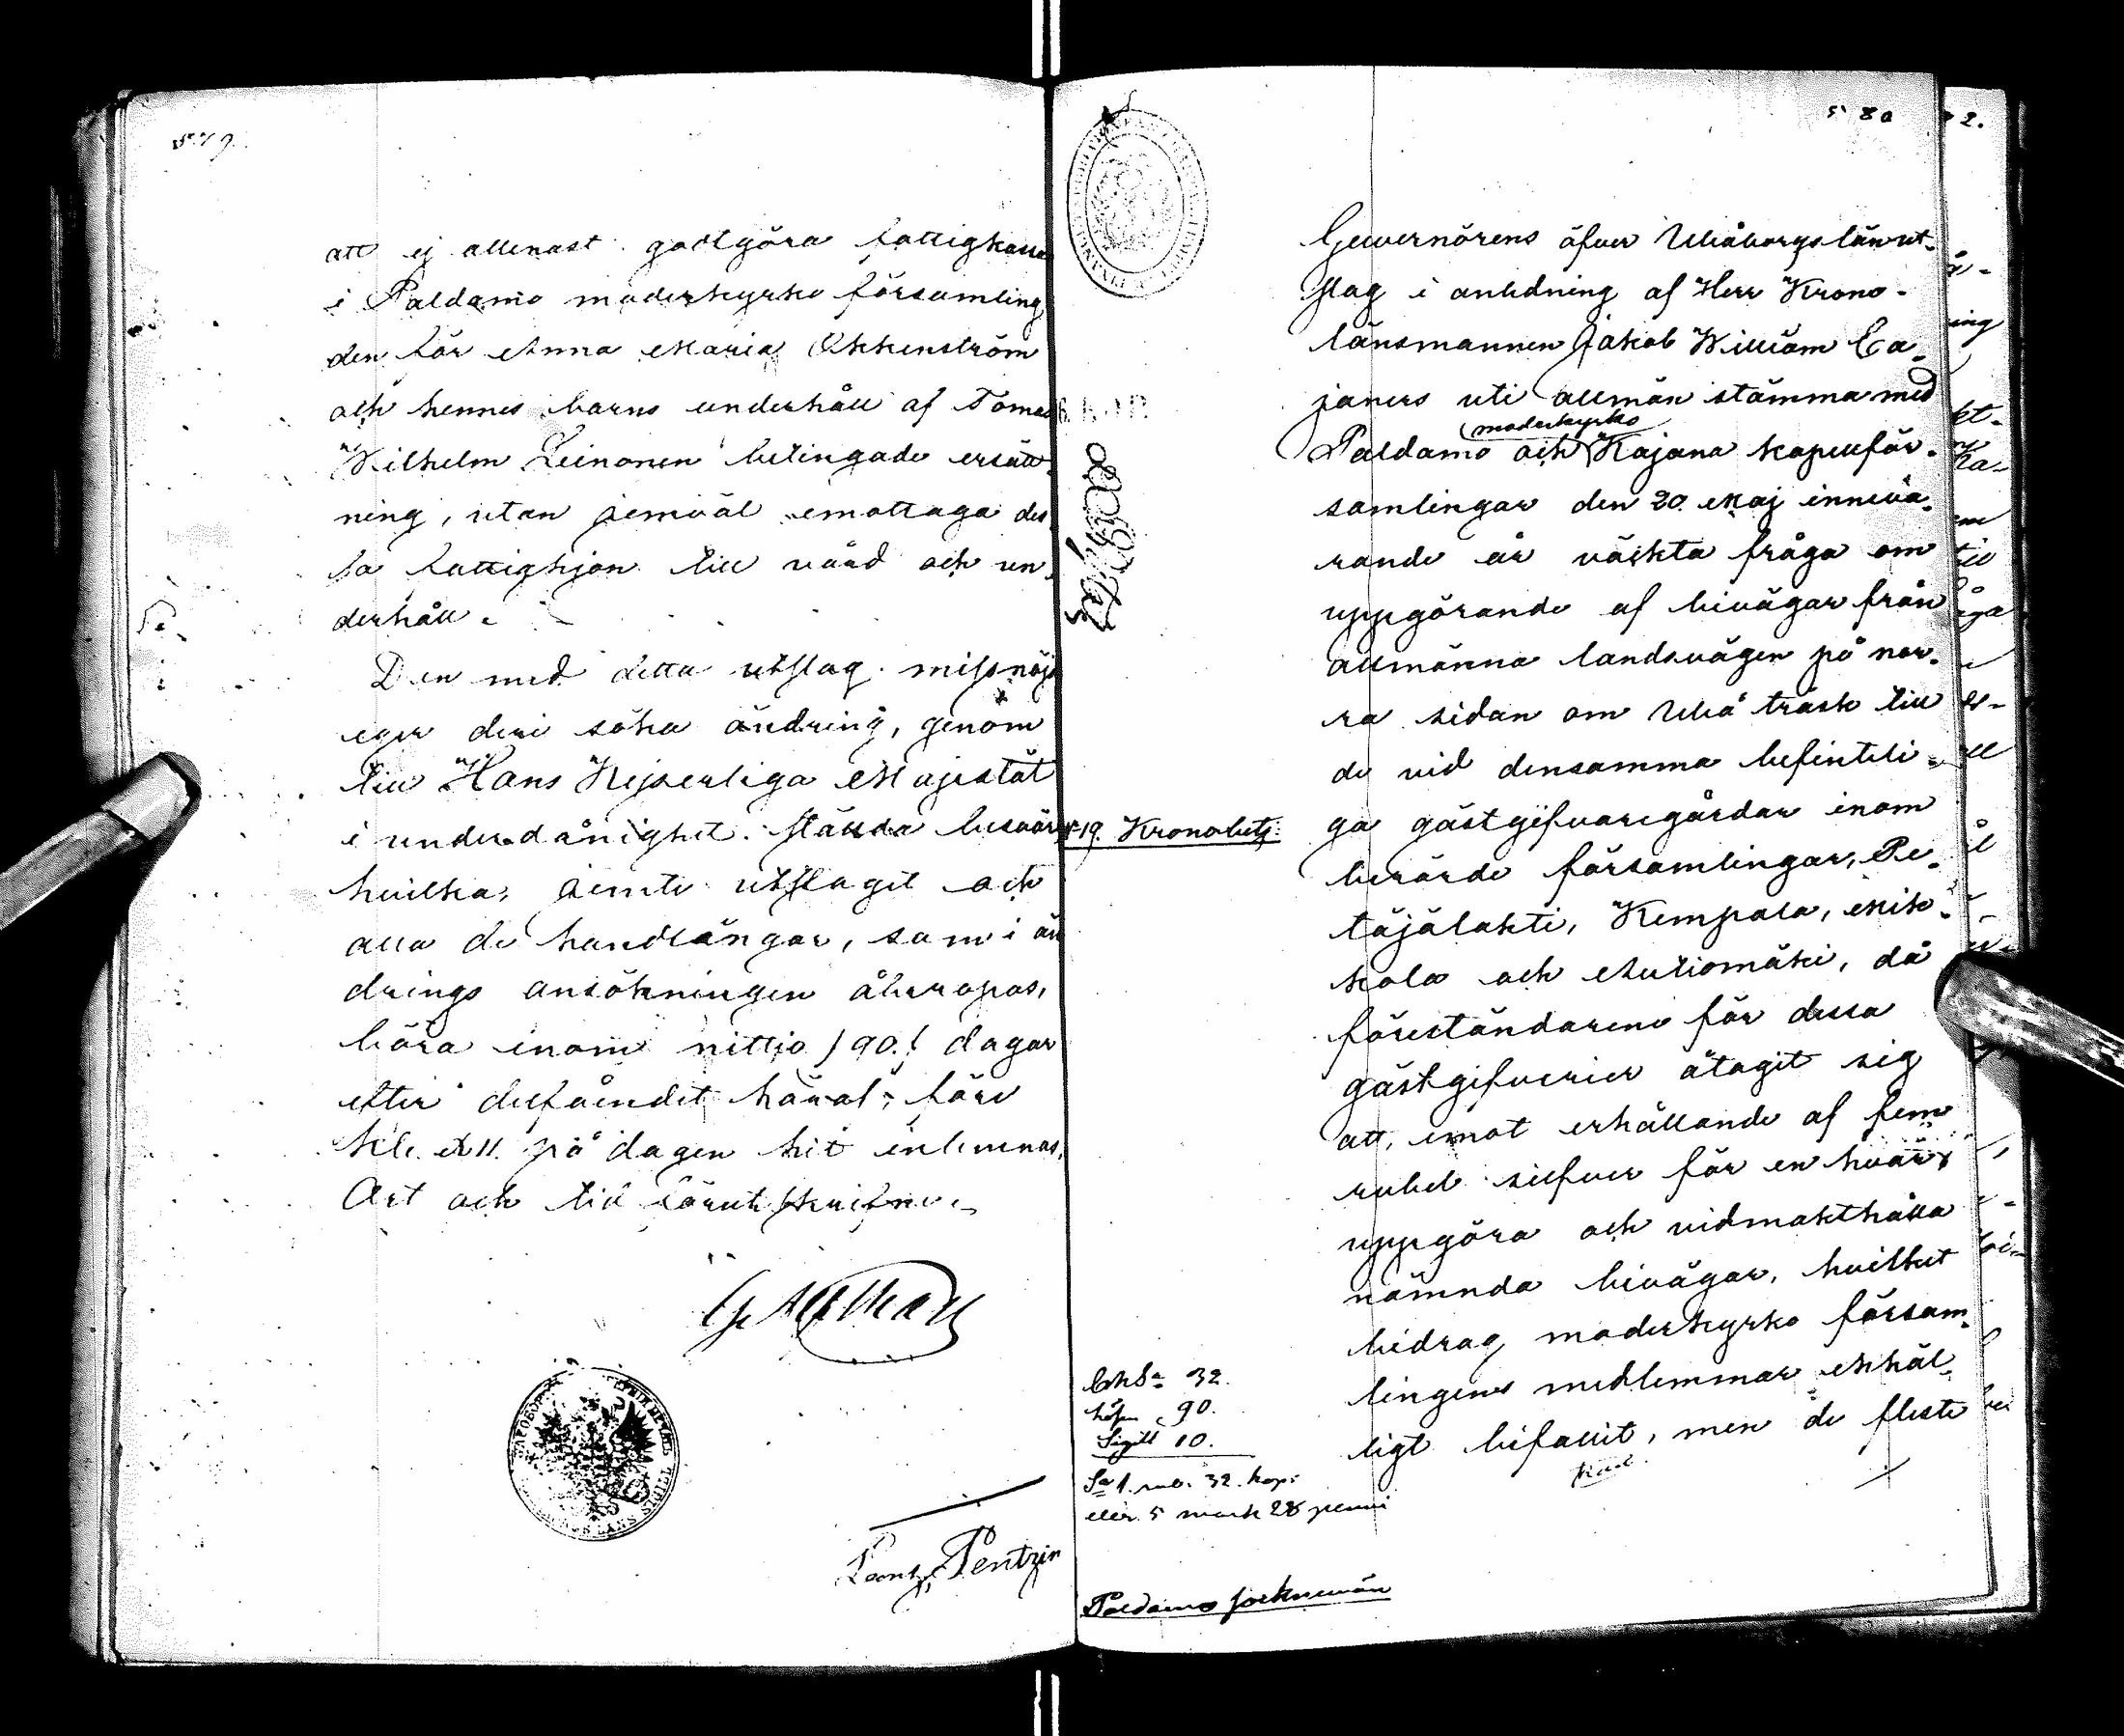 579.
att ej allenast godtgöra fattigkassa
i Paldamo moderkyrko församling
den för Anna Maria Okkenström
och hennes barns underhåll af Tomas
Wilhelm Leinonen betingade ersätt-
ning, utan jemväl emottaga des
sa fattighjon till vård och un-
derhåll.
Den med detta utslag missnöjd
eger deri söka ändring, genom
till Hans Kejserliga Majestät
i underdånighet ställda besvär,
hvilka, jemte utslaget och
alla de handlingar, som i än
drings ansökningen åberopas,
böra inom nittio /90./ dagar
efter delfåendet häraf, före
kl. 12. på dagen hit inlemnas.
Ort och tid förut skrifne.
Pentzin
580
Guvernörens öfver Uleåborgs län ut-
slag i anledning af Herr Krono-
länsmannen Jakob William Ca-
janers uti allmän stämma med
moderkyrko
Paldamo och Kajana kapellför-
samlingar den 20. Maj inneva-
rande år väckta fråga om
uppgörande af bivägar från
allmänna landsvägen på nor-
ra sidan om Uleå träsk till
de vid densamma befintli-
ga gästgifvaregårdar inom
berörde församlingar, Pe-
täjälahti, Kempala, Mik-
kola och Autiomäki, då
föreståndarene för dessa
gästgifverier åtagit sig
att, emot erhållande af fem
rubel silfver för en hvar,
uppgöra och vidmakthålla
nämnda bivägar, hvilket
bidrag moderkyrko försam-
lingens medlemmar enhäl-
ligt bifallit, men de fleste
19. Kronobetj:
32.
90.
Sigill 10.
Sa 1. rub. 32. kop:
eller 5 mark 28 penni
Paldamo sockenmän
2.